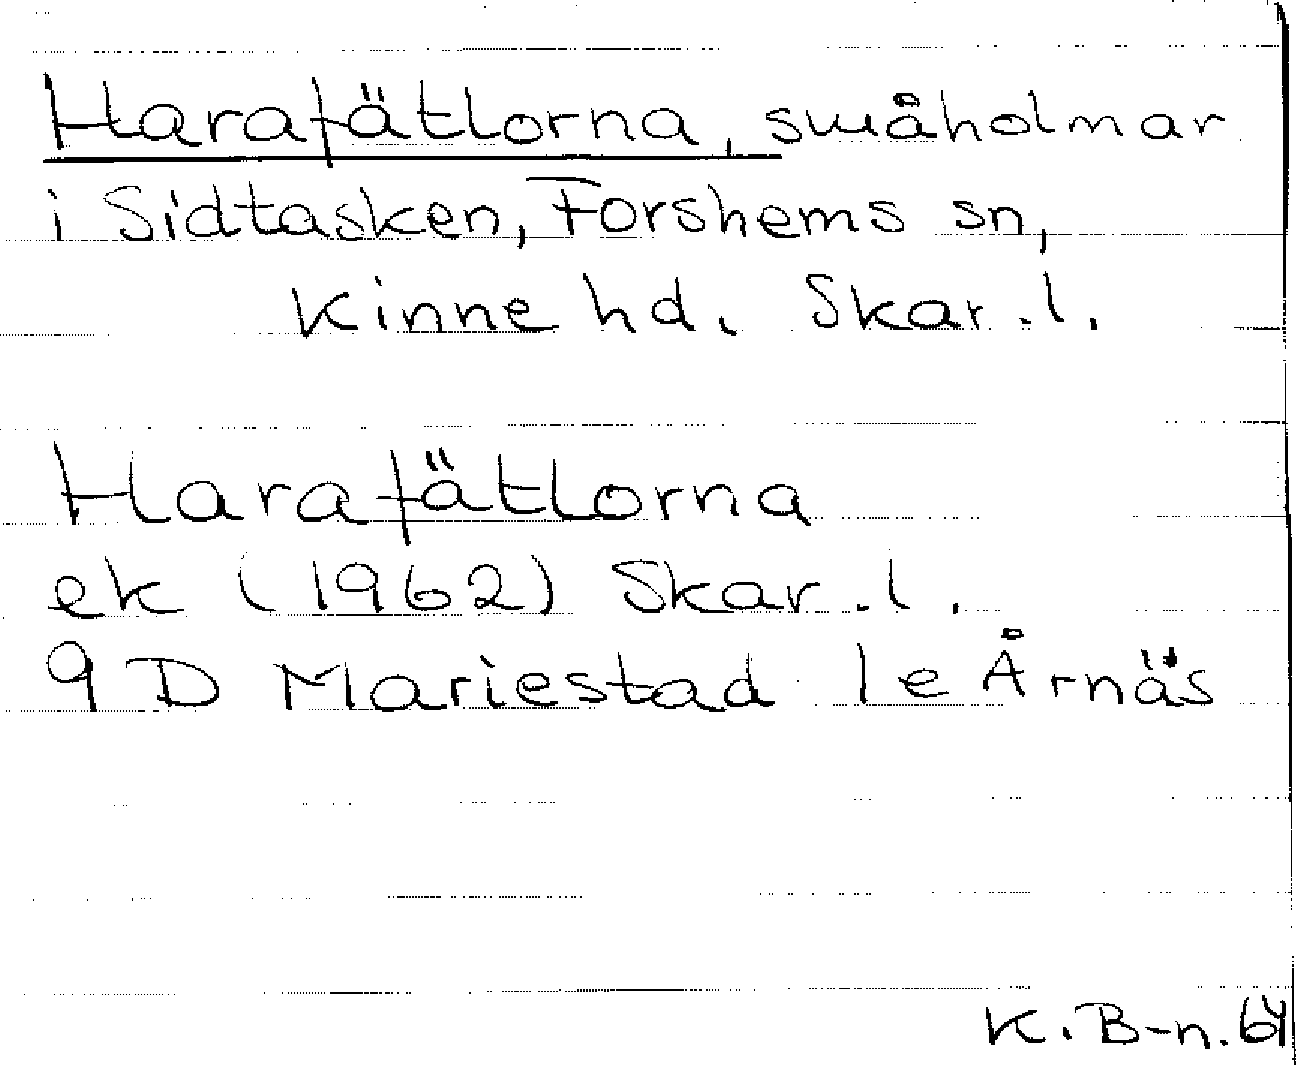 Harafätlorna, småholmar
i Sidtasken, Forshems sn,
Kinne hd. Skar.l.
Harafätlorna
ek (1962) Skar.l.
9D Mariestad 1e Årnäs
K.B-n. 64